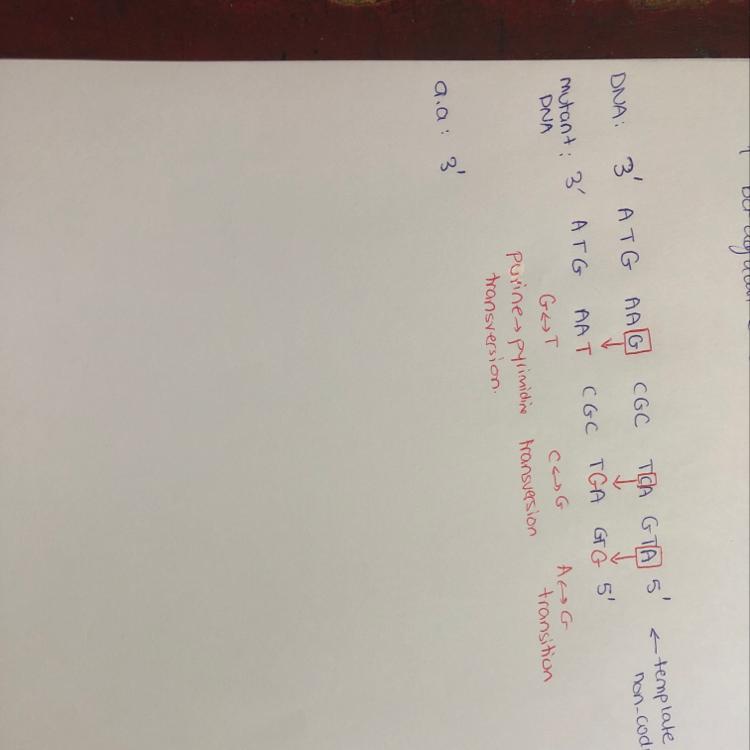 DNA: 3' ATG AAG CGC TCA GTA 5' ← template
mutant: 3' ATG AAT CGC TGA GTG 5'
DNA
G↔T C↔G A↔G
purine→pyrimidine transversion transition
transversion.
a.a: 3'